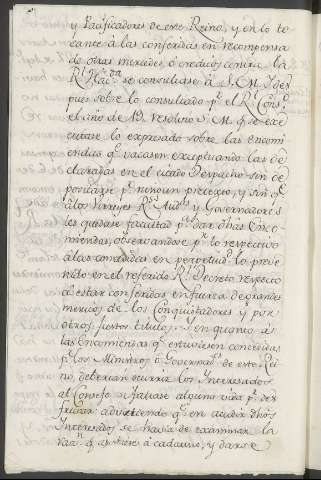 y Pacificadores de este Reino, y en lo to
cante à las conferidas en recompensa
de otras mercedes, ò creditos contra la
Rl. Hacda. se consultase à S. M. Y des
pues sobre lo consultado pr. el Rl. Consº
el año de 19. resolvió S. M. q. se exe
cutase lo expresado sobre las encomi
endas q. vacasen exceptuando las de
claradas en el citado Despacho sin de
positarse pr. ningun pretexto, y sin qe.
à los Virreyes Rs. Auds. y Governadores
les quedase facultad pa. dar dhas Enco
miendas, observandose pr. lo respectivo
a las concedidas en perpetuid. lo preve
nido en el referido Rl. Decreto respecto
al estar conferidas en fuerza de grandes
meritos de los Conquistadores y por
otros justos titulos. en quanto â
las encomiendas qe. estuviesen concedidas
pr. los Ministros ò Governars. de este Rei
no, deberian ocurrir los Interesados
al Consejo si faltase alguna vida pr. dis
frutar advirtiendo qe. en acudir dhos
Interesados se havia de examinar la
raan. q. asistiese à cada uno, y darse